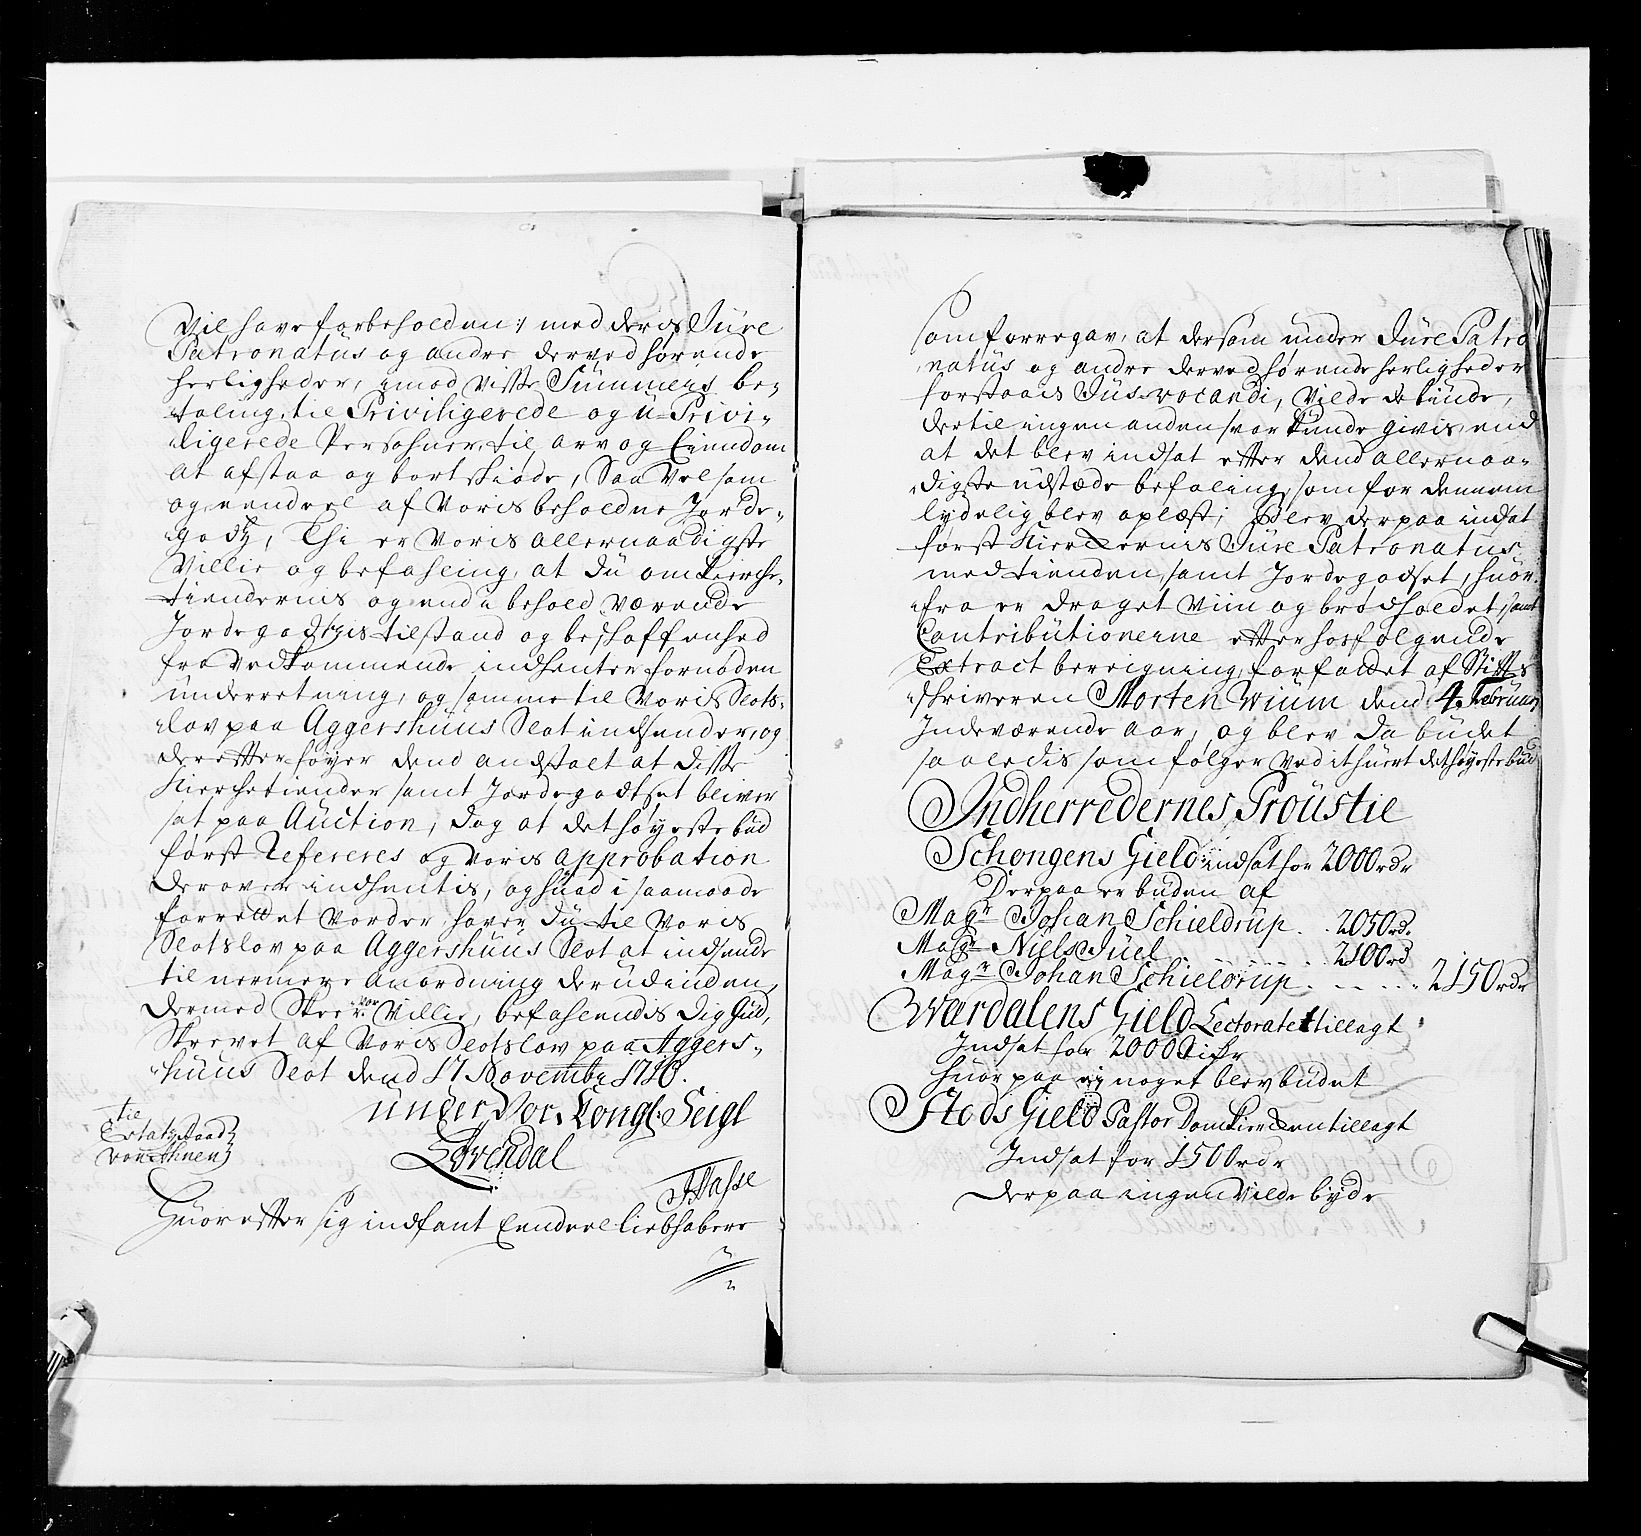 Vil have forbeholden :/ med deris Jure
Patronatus og andre derved hørende
herligheder, imod visse Summers be-
taling, til Priviligerede og u-Privi-
ligerede Persohner, til arv og Eiendom
at afstaa og bortskiøde, Saa Vel som
og eendeel af Voris beholdne Jorde-
godtz, Thi er Voris allernaadigste
Villie og befahling, at du om Kierche-
tiendernis og end i behold værende
Jordegodtzis tilstand og beskaffenhed
fra Vedkommende indhenter fornøden
underretning, og samme til Voris Slots-
lov paa Aggershuus Slot indsender, og
derefter føyer dend anstalt at disse
Kierchetiender samt Jordegodtset bliver
sat paa Auction, dog at det høyeste bud
først Refereres og Voris approbation
derover indhentis, og huad i saamaade
forrettet vorder, haver du til Voris
Slotslov paa Aggershuus Slot at indsende
til nermere anordning derudinden,
dermed Skeer vor Villie, befalendis dig Gud,
Skrevet af Voris Slotslov paa Aggers-
huus Slot dend 17 Novembr 1718.
under Vor Kongl: Seigl
Løvendal
til
Etatz Raad
von Ahnen
F Hasse
Huorefter sig indfant Eendeel liebhabere
som foregav, at dersom under Jure Patro
natus og andre derved hørende herligheder
forstaais Jus vocandi, vilde de biude,
dertil ingen anden svar kunde givis, end
at det blev indsat efter dend allernaa-
digste udstæde befaling, som for dennem
lydelig blev oplæst; Blev derpaa indsat
først Kierkernis Jure Patronatus
med tienden, samt Jordegodset, huor-
fra er draget Viin og brødholdet, samt
Contributionerne efter hosfølgende
Extract bereigning, forfattet af Stifts
skriveren Morten Wium dend 4 Februar
Indeværende aar, og blev da budet
saaledis som følger ved ithuert det høyeste bud
Indherredernes Proustie
Schongens Gield indsat for 2000 rdr
Derpaa er buden af
Magr Johan Schieldrup . . 2050 rdr
Magr Niels Juel . . . . . 2100 rd
Magr Johan Schieldrup . . . . . 2150 rdr
Wærdalens Gield Lectoratet tillagt
Indsat for 2000 Ridr
huor paa ey noget blev budet
Stods Gield Pastor Domkirken tillagt
Indsat for 1500 rdr
derpaa ingen vilde byde